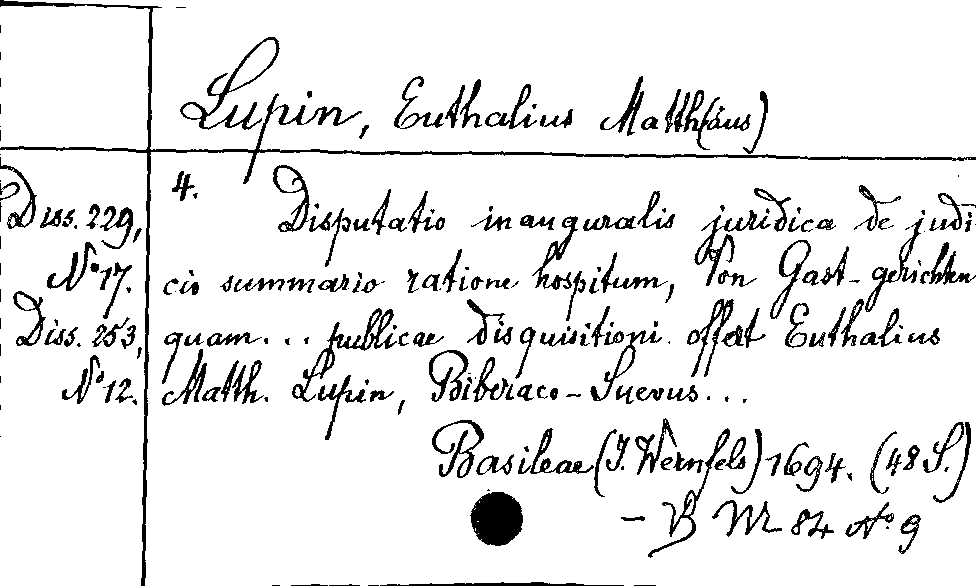 Lupin, Euthalius Matth(äus)
4.
Diss. 229, Disputatio inauguralis juridica de judi-
No 17. cio summario ratione hospitum, Von Gast-gerichten
Diss. 253, quam... publicae disquisitioni offert Euthalius
No 12. Matth. Lupin, Biberaco-Suevus...
Basileae (J. Wernfels) 1694. (48 S.)
– B 84 No 9